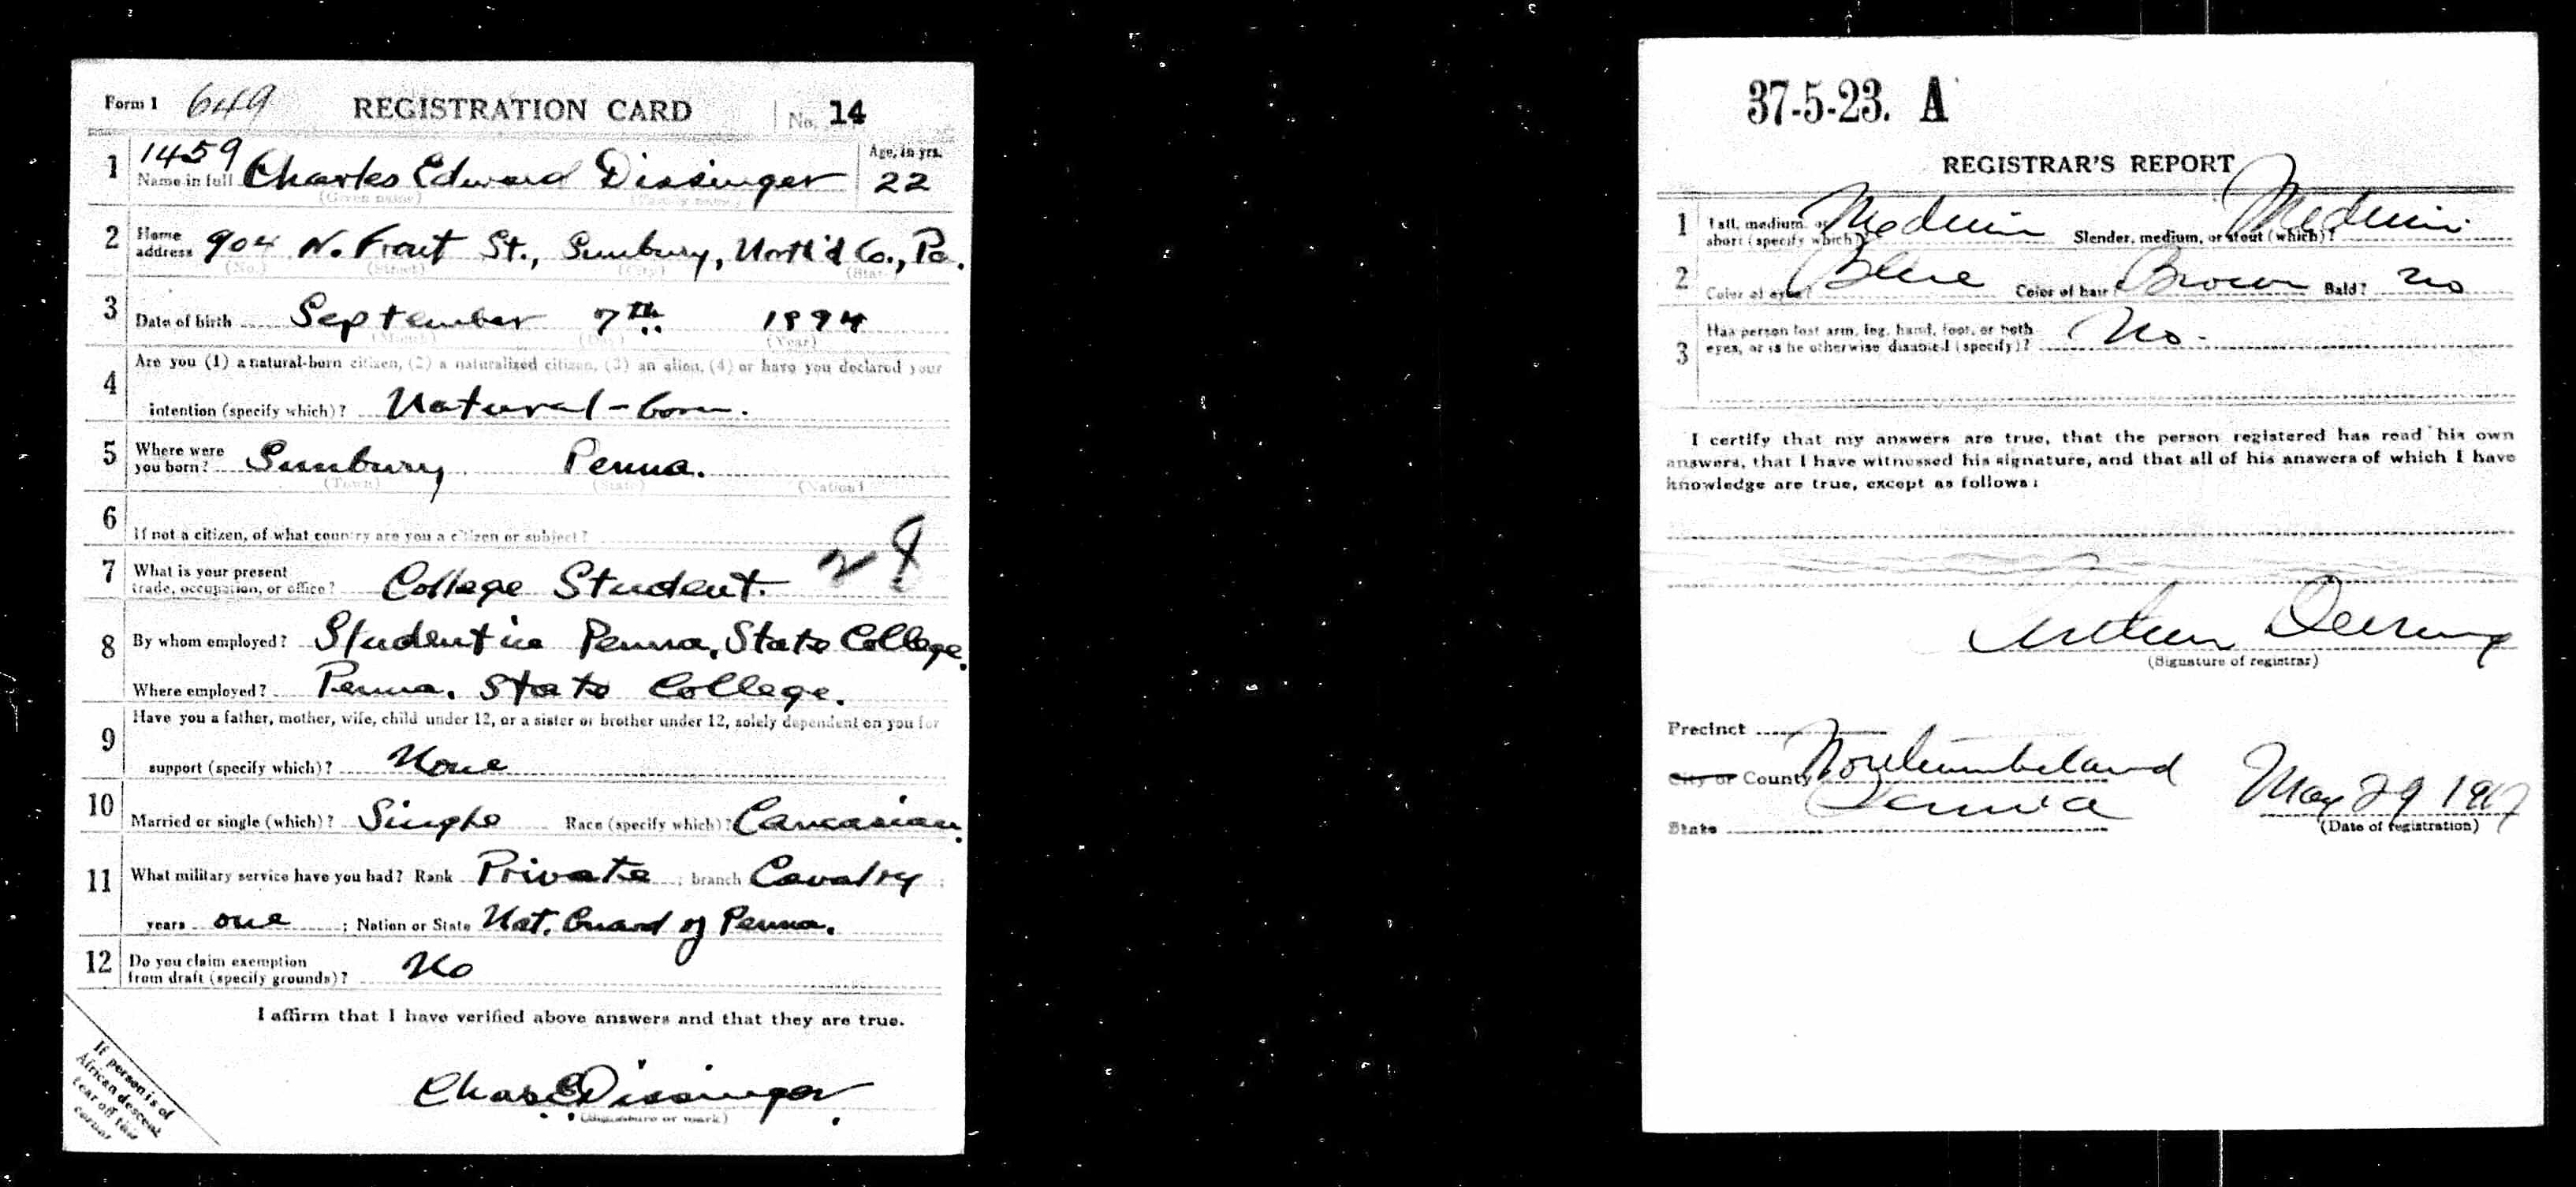 Form 1 649 REGISTRATION CARD No. 14
1459
1 Name in full Charles Edward Dissinger Age, in yrs. 22
(Given name) (Family name)
2 Home address 904 N. Front St., Sunbury, North'd Co., Pa.
(No.) (Street) (City) (State)
3 Date of birth September 7th 1894
(Month) (Day) (Year)
4 Are you (1) a natural-born citizen, (2) a naturalized citizen, (3) an alien, (4) or have you declared your
intention (specify which)? Natural-born.
5 Where were you born? Sunbury Penna.
(Town) (State) (Nation)
6 If not a citizen, of what country are you a citizen or subject?
7 What is your present trade, occupation, or office? College Student.
8 By whom employed? Student in Penna. State College.
Where employed? Penna. State College.
9 Have you a father, mother, wife, child under 12, or a sister or brother under 12, solely dependent on you for
support (specify which)? None
10 Married or single (which)? Single Race (specify which)? Caucasian.
11 What military service have you had? Rank Private ; branch Cavalry ;
years one ; Nation or State Nat. Guard of Penna.
12 Do you claim exemption from draft (specify grounds)? No
I affirm that I have verified above answers and that they are true.
Chas. E. Dissinger.
(Signature or mark)
If person is of
African descent
tear off this
corner
37-5-23. A
REGISTRAR'S REPORT
1 Tall, medium, or short (specify which)? Medium Slender, medium, or stout (which)? Medium
2 Color of eyes? Blue Color of hair? Brown Bald? No
3 Has person lost arm, leg, hand, foot, or both eyes, or is he otherwise disabled (specify)? No.
I certify that my answers are true, that the person registered has read his own
answers, that I have witnessed his signature, and that all of his answers of which I have
knowledge are true, except as follows:
Arthur
(Signature of registrar)
Precinct
City or County Northumberland
State Penna
May 29 1917
(Date of registration)